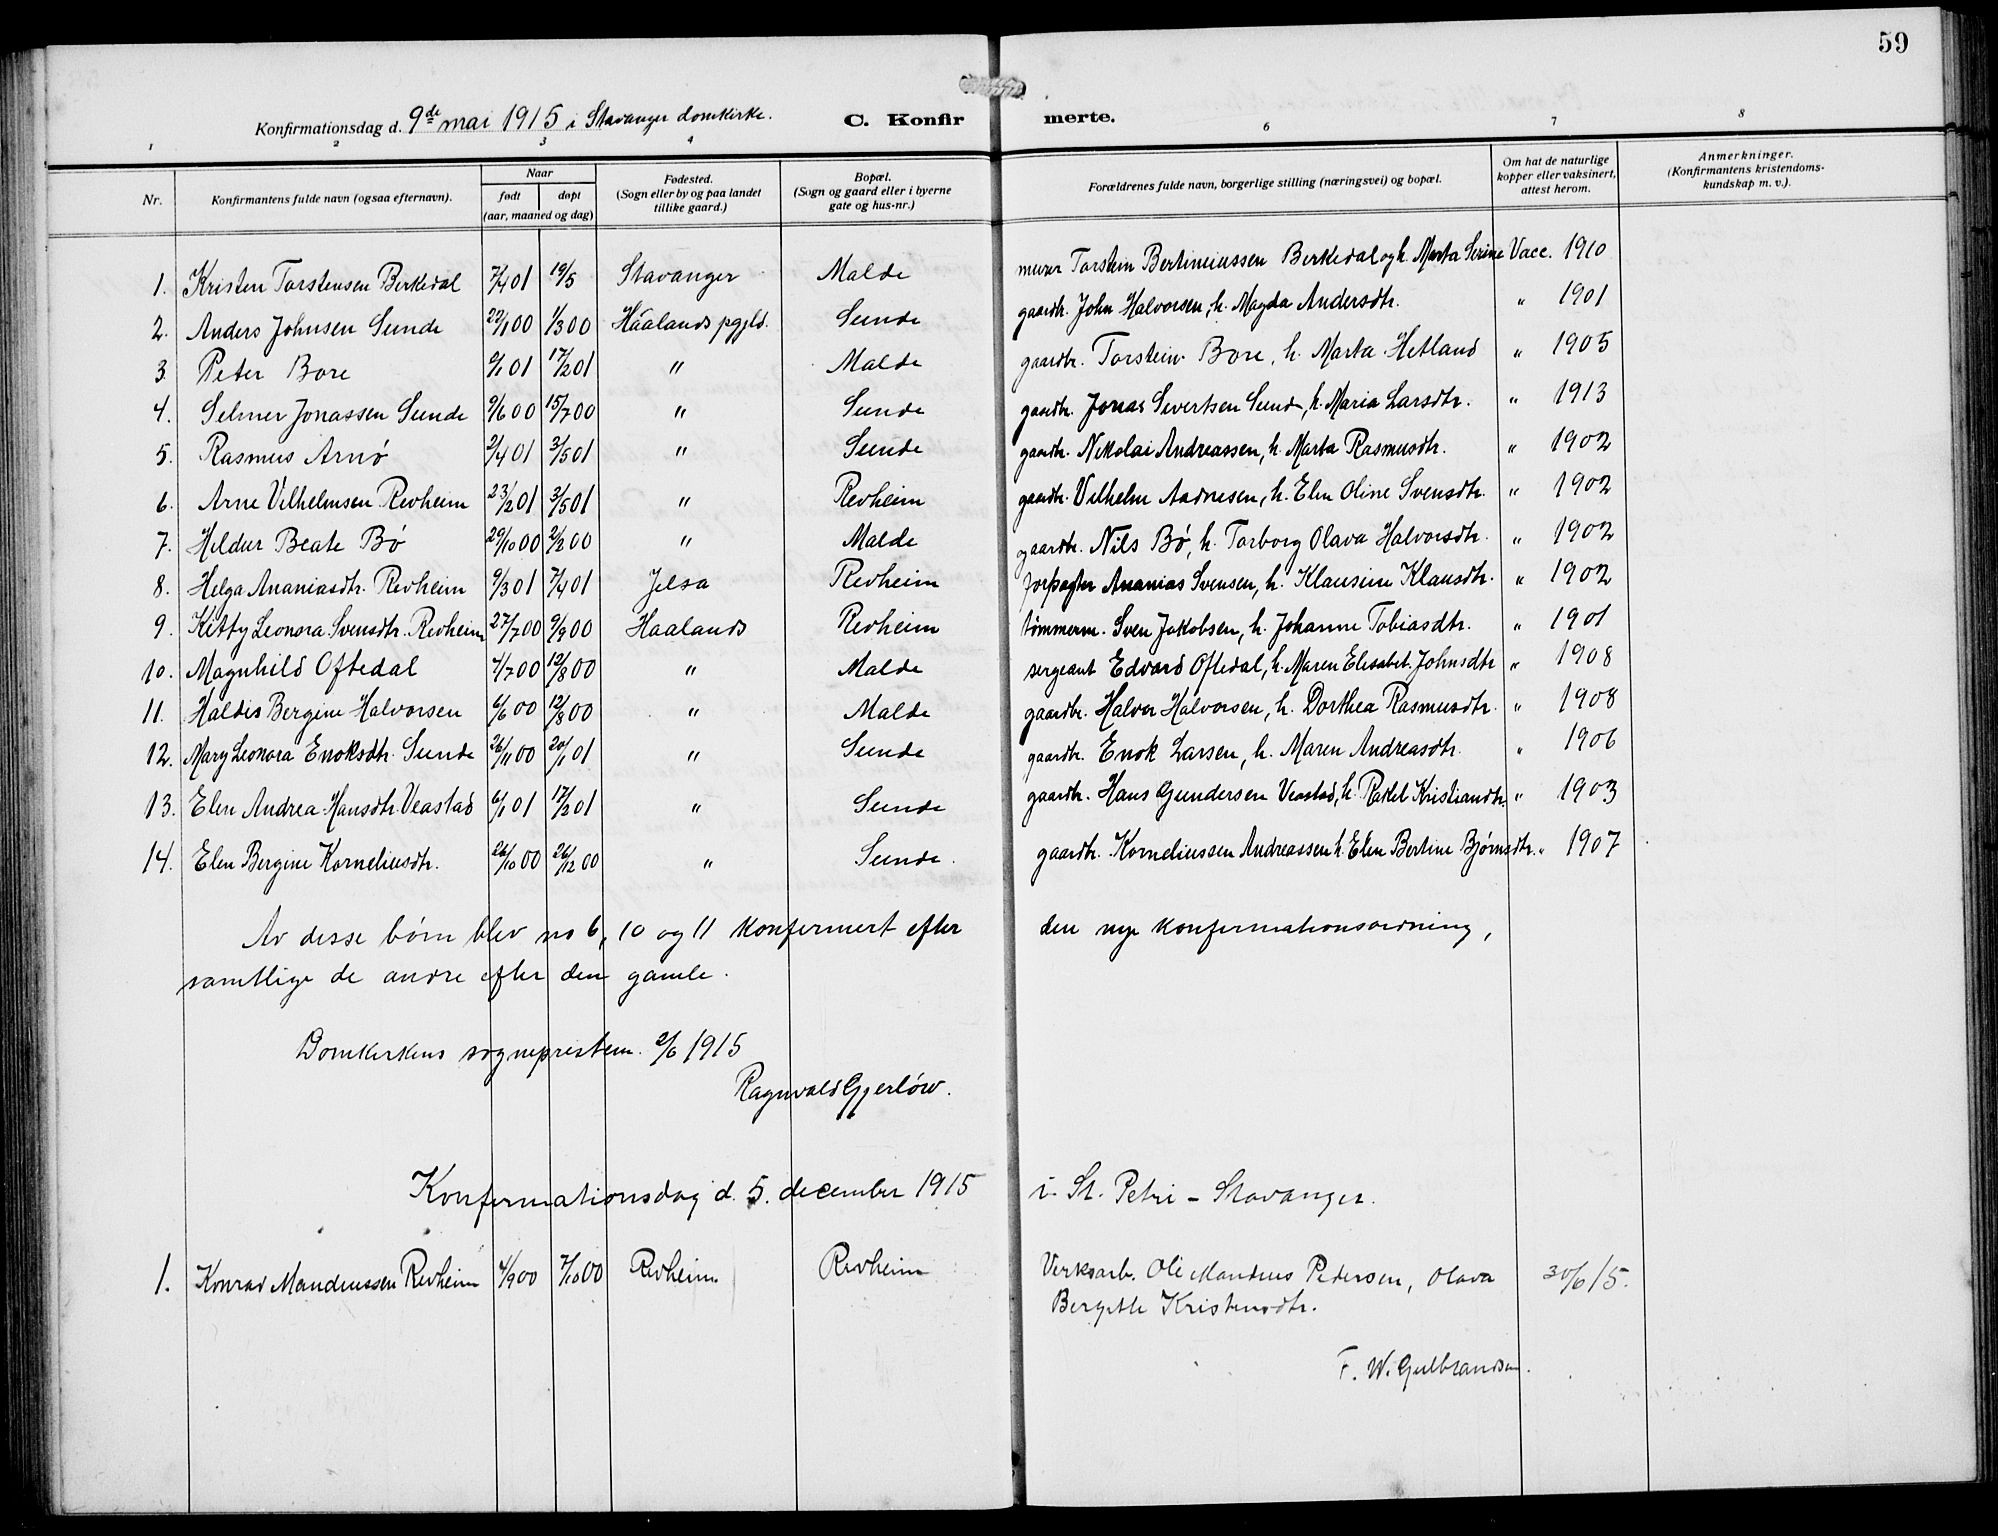 59
Konfirmationsdag d. 9de mai 1915 i Stavanger domkirke. C. Konfir merte.
1 2 3 4 6 7 8
Nr. Konfirmantens fulde navn (ogsaa efternavn). Naar født døpt (aar, maaned og dag) Fødested. (Sogn eller by og paa landet tillike gaard.) Bopæl. (Sogn og gaard eller i byerne gate og hus-nr.) Forældrenes fulde navn, borgerlige stilling (næringsvei) og bopæl. Om hat de naturlige kopper eller vaksinert, attest herom. Anmerkninger. (Konfirmantens kristendoms-kundskap m. v.).
1. Kristen Torstensen Berkedal 7/4 01 19/5 Stavanger Malde murer Torstein Bertineiussen Berkedal og h. Marta Serine Vacc. 1910
2. Anders Johnsen Sunde 22/1 00 1/3 00 Haalands pgjld. Sunde gaardbr. John Halvorsen, h. Magda Andersdtr. " 1901
3. Peter Bore 9/1 01 17/2 01 " Malde gaardbr. Torstein Bore, h. Marta Hetland " 1905
4. Selmer Jonassen Sunde 9/6 00 15/7 00 " Sunde gaardbr. Jonas Sivertsen Sunde, h. Maria Larsdtr. " 1913
5. Rasmus Arnø 2/4 01 3/5 01 " Sunde gaardbr. Nikolai Andreassen, h. Marta Rasmusdtr. " 1902
6. Arne Vilhelmsen Revheim 23/2 01 3/5 01 " Revheim gaardbr. Vilhelm Aadnesen, h. Elen Oline Svensdtr. " 1902
7. Hildur Beate Bø 29/10 00 2/2 00 " Malde gaardbr. Nils Bø, h. Torborg Olava Halvorsdtr. " 1902
8. Helga Ananiasdtr. Revheim 9/3 01 7/4 01 Jelsa Revheim forpagter Ananias Svensen, h. Klausine Klausdtr. " 1902
9. Kitty Leonora Svensdtr. Revheim 27/7 00 9/9 00 Haalands Revheim tømmerm. Sven Jakobsen, h. Johanne Tobiasdtr. " 1901
10. Magnhild Oftedal 4/7 00 12/8 00 " Malde sergeant Edvard Oftedal, h. Maren Elisabet Johnsdtr " 1908
11. Haldis Bergine Halvorsen 6/6 00 12/8 00 " Malde gaardbr. Halvor Halvorsen, h. Dorthea Rasmusdtr. " 1908
12. Mary Leonora Enoksdtr. Sunde 26/11 00 20/1 01 " Sunde gaardbr. Enok Larsen, h. Maren Andreasdtr. " 1906
13. Elen Andrea Hansdtr. Veastad 6/1 01 17/2 01 " Sunde gaardbr. Hans Gundersen Veastad, h. Rakel Kristiandtr. " 1903
14. Elen Bergine Korneliusdtr. 26/10 00 26/12 00 " Sunde. gaardbr. Korneliussen Andreassen h. Elen Bertine Bjørnsdtr. " 1907
Av disse børn blev no 6, 10 og 11 konfirmert efter den nye konfirmationsordning,
samtlige de andre efter den gamle.
Domkirkens sogneprestem. 2/6 1915
Ragnvald Gjerløw.
Konfirmationsdag d. 5. december 1915 i St. Petri - Stavanger.
1. Konrad Mandiussen Revheim 4/9 00 7/10 00 Revheim Revheim Verksarb. Ole Mandius Pedersen, Olava 30/6 15.
Bergitte Kristensdtr.
F. W. Gulbrandsen.